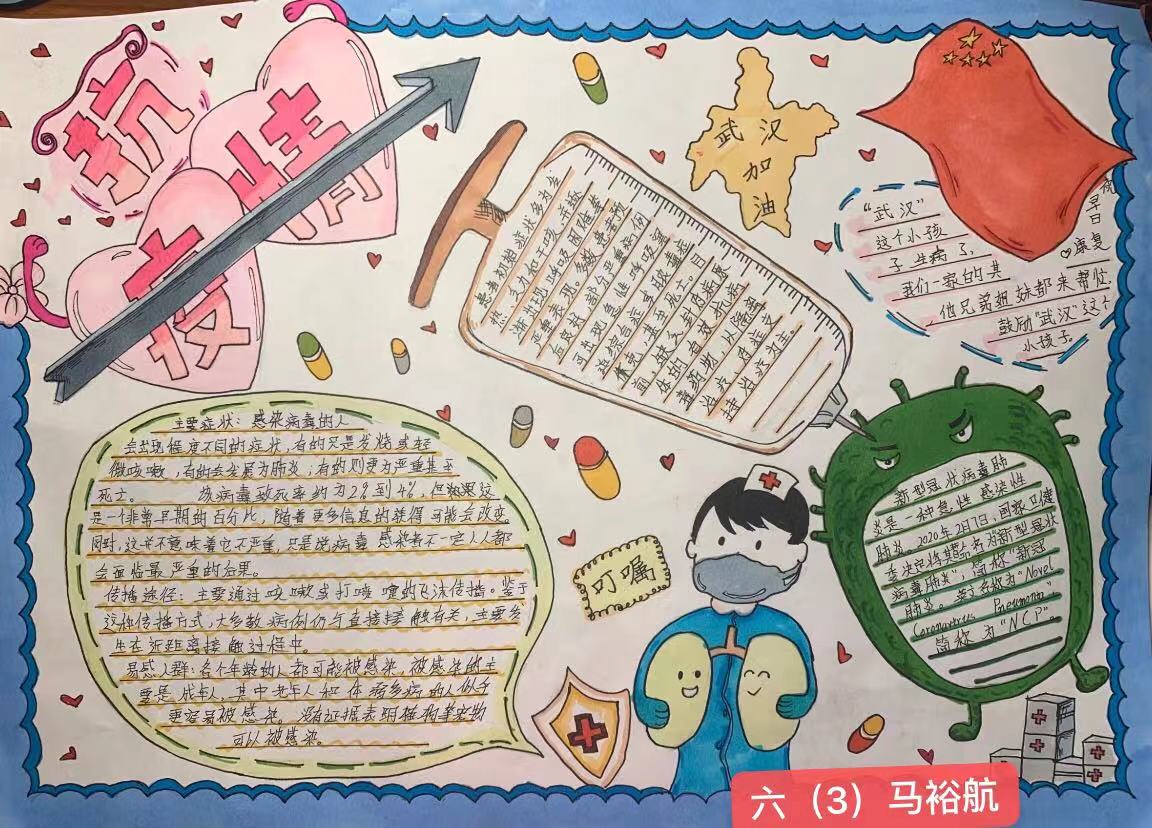 抗
疫
情
武汉
加
油
“武汉”
这个小孩
子生病了,
我们一家的其
他兄弟姐妹都来帮忙
鼓励“武汉”这个
小孩子。
祝
早
日
康复
患者初始症状多为发
热、乏力和干咳,并逐
渐出现呼吸困难等
严重表现。多数患者预
后良好,部分严重病例
可出现急性呼吸窘
迫综合征或脓毒症
休克,甚至死亡。目
前,
体的
治疗,
持治疗为主。
主要症状:感染病毒的人
会出现程度不同的症状,有的只是发烧或轻
微咳嗽,有的会发展为肺炎,有的则更为严重甚至
死亡。 该病毒致死率约为2%到4%,但如果这
是一个非常早期的百分比,随着更多信息的获得可能会改变。
同时,这并不意味着它不严重,只是说病毒感染者不一定人人都
会面临最严重的后果。
传播途径:主要通过咳嗽或打喷嚏的飞沫传播。鉴于
这种传播方式,大多数病例仍与直接接触有关,主要发
生在近距离接触过程中
易感人群:各个年龄的人都可能被感染,被感染的主
要是成年人,其中老年人和体弱多病的人似乎
更容易被感染。没有证据表明猫狗等宠物
可以被感染。
叮嘱
新型冠状病毒肺
炎是一种急性感染性
肺炎。2020年2月7日,国家卫健
委决定将其命名为“新型冠状
病毒肺炎”,简称“新冠
肺炎”。英文名称为“Novel
Coronavirus Pneumonia”
简称为“NCP”。
六(3)马裕航